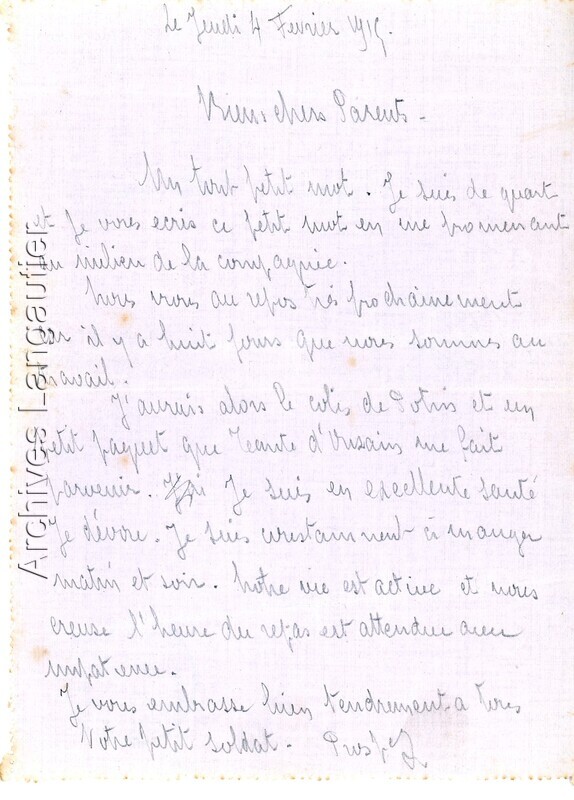 Le Jeudi 4 Février 1915.
Biens chers Parents -
Un tout petit mot. Je suis de quart
et je vous ecris ce petit mot en me promenant
au milieu de la compagnie.
Nous irons au repos très prochainement
car il y a huit jours que nous sommes au
travail.
J'aurais alors le colis de Potin et un
petit paquet que Tante d'Onzain me fait
parvenir. Je suis en excellente santé
Je dévore. Je suis constamment à manger
matin et soir. Notre vie est active et nous
creuse l'heure du repas est attendue avec
impatience.
Je vous embrasse bien tendrement a tous
Votre petit soldat -
Archives Langautier